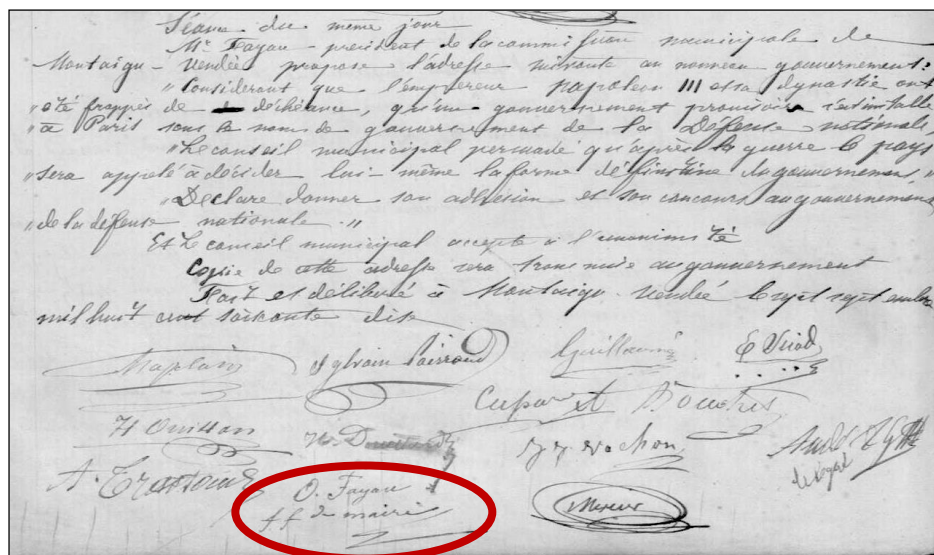 Séance du même jour
Mr Fayau - president de la commission municipale de
Montaigu - Vendée propose l'adresse suivante au nouveau gouvernement:
"Considérant que l'empereur Napoléon III et sa dynastie ont
"été frappés de déchéance, qu'un gouvernement provisoire s'est installé
"à Paris sous le nom de gouvernement de la Défense nationale,
"Le conseil municipal persuadé qu'après la guerre le pays
"sera appelé à décider lui-même la forme définitive du gouvernement"
"Déclare donner son adhésion et son concours au gouvernement
"de la défense nationale."
Et le conseil municipal accepte à l'unanimité
Copie de cette adresse sera transmise au gouvernement
Fait et délibéré à Montaigu-Vendée le sept septembre
mil huit cent soixante dix
Sylvain Guillaumé
J J Vochon
O. Fayau
f f de maire
Mercier